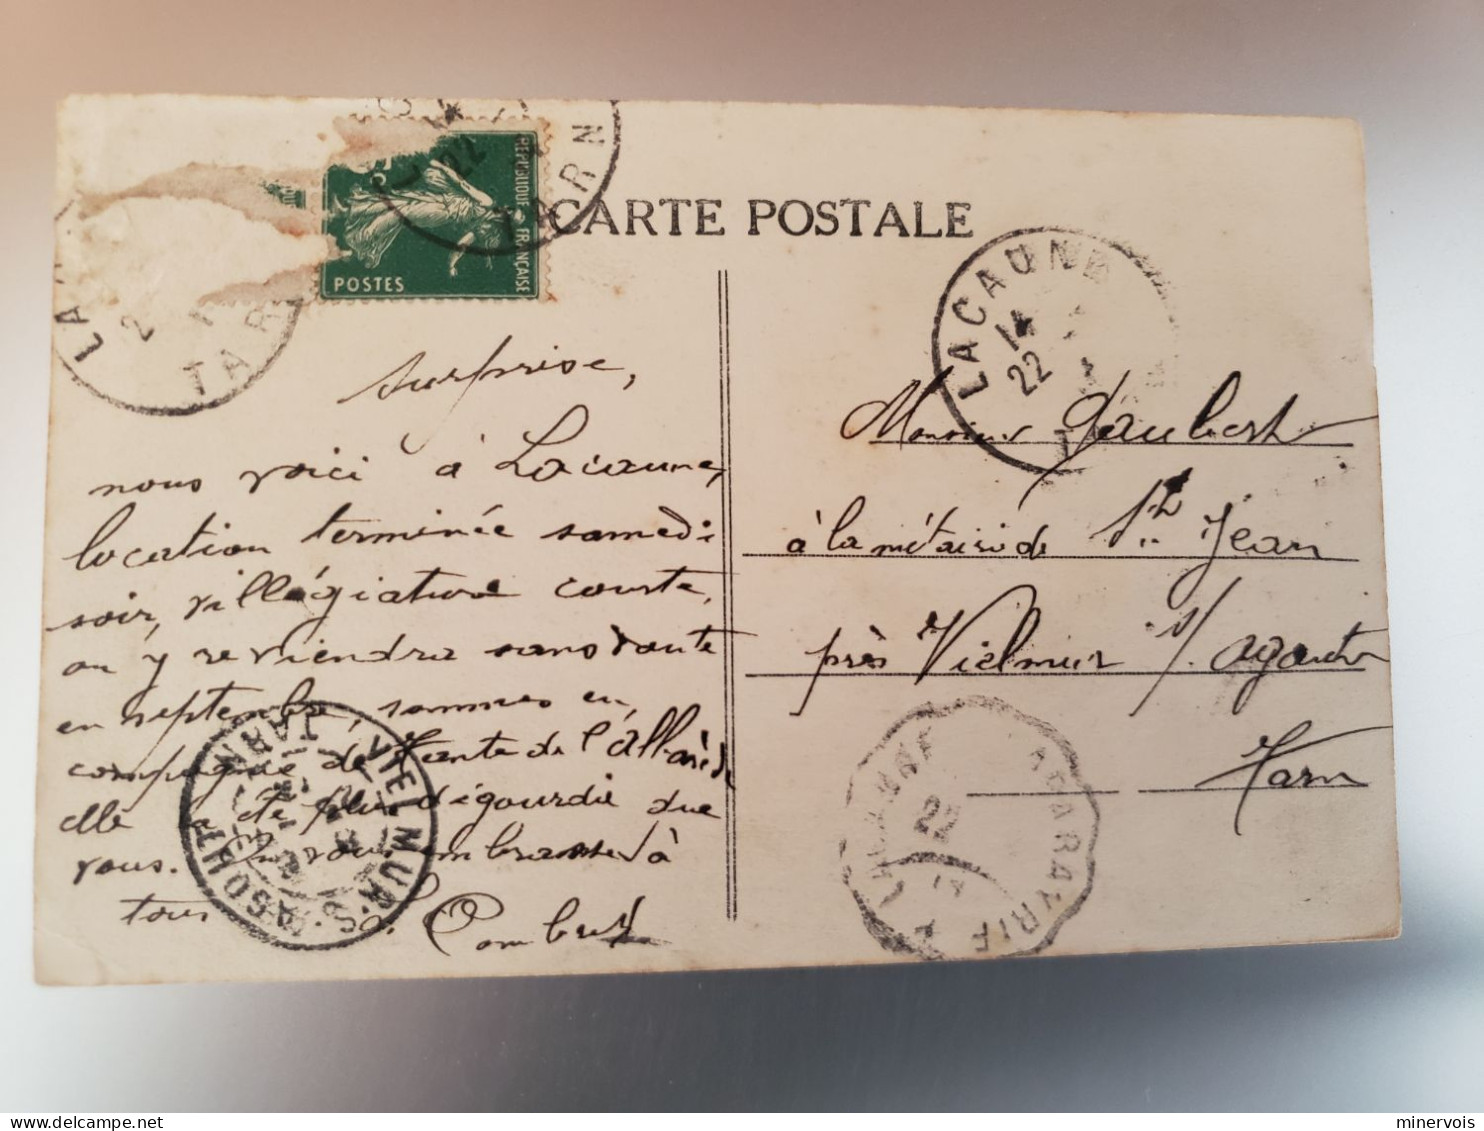 CARTE POSTALE
REPUBLIQUE FRANÇAISE
POSTES
TARN
22
LACAUNE
14
22
TAR
surprise,
nous voici à Lacaune,
location terminée samedi
soir, villégiature courte,
on y reviendra sans doute
en septembre, sommes en
compagnie de Tante de l'
elle a été plus dégourdie que
vous. On vous embrasse à
tous
Monsieur Jaubert
à la métairie de St Jean
près Vielmur s/ Agout
Tarn
VIELMUR-S-AGOUT
TARN
22
minervois